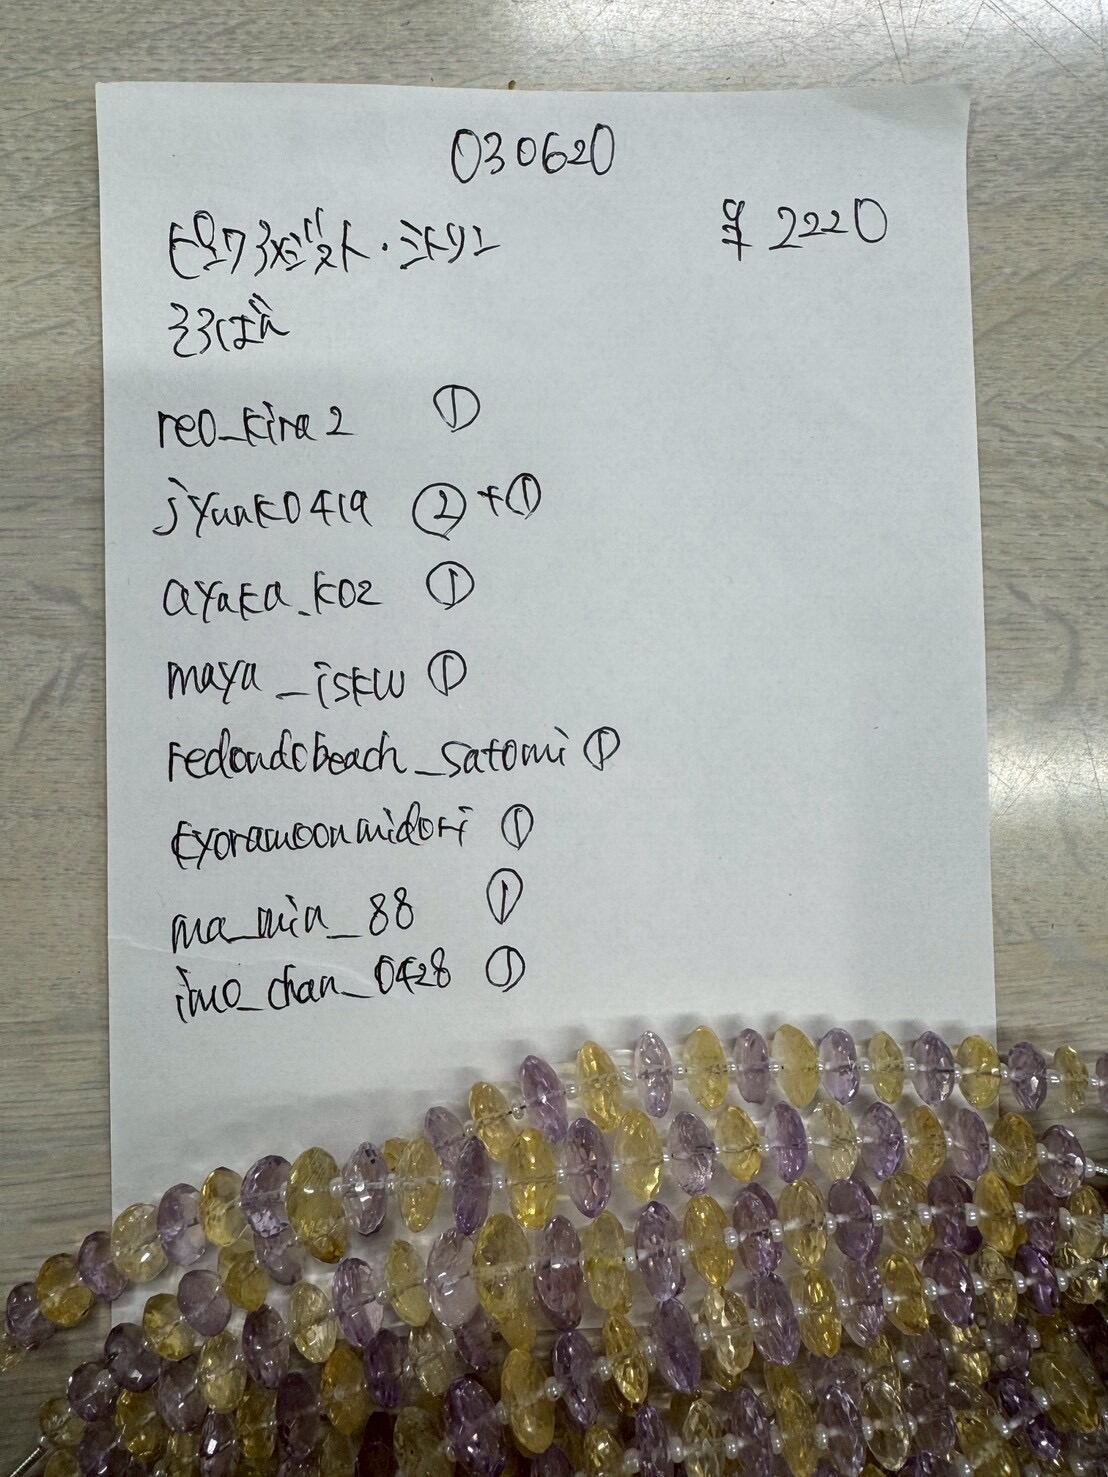 030620
¥2220
reo_kira2 ①
jyunk0419 ②+①
ayaka_k02 ①
maya_iskw ①
redondobeach_satomi ①
kyoramoonmidori ①
ma_min_88 ①
imo_chan_0428 ①